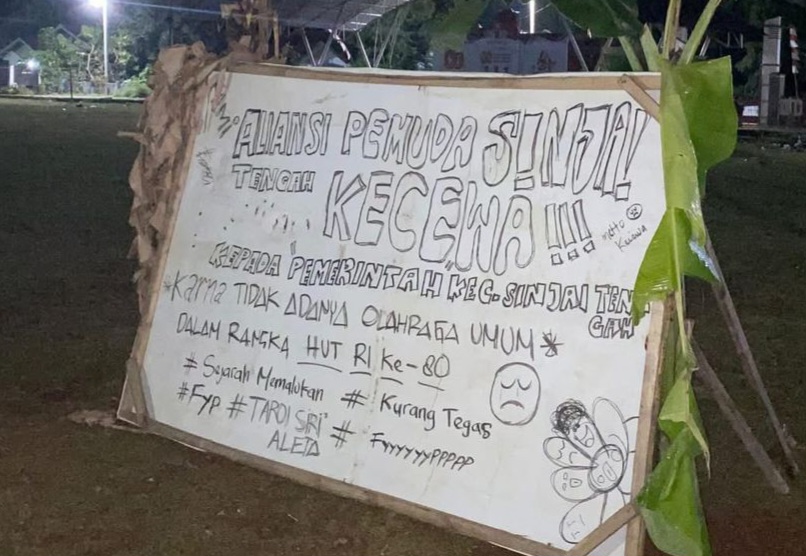 ALIANSI PEMUDA SINJAI!
TENGAH KECEWA!!!
KEPADA PEMERINTAH KEC. SINJAI TENGAH
*Karna TIDAK ADANYA OLAHRAGA UMUM*
DALAM RANGKA HUT RI Ke-80
# Sejarah Memalukan # Kurang Tegas
#Fyp # TAROI SIRI' ALETA # Fyyyyyyypppp